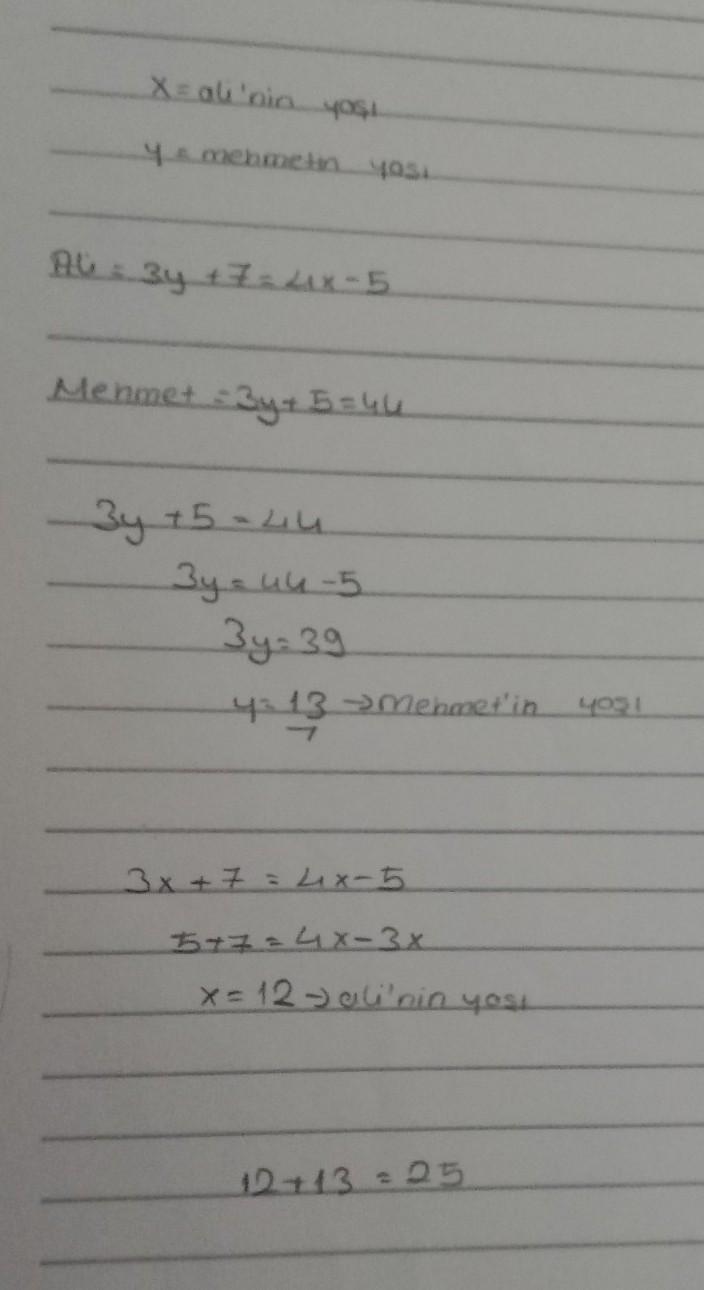 x = ali'nin yaşı
y = mehmetin yaşı
Ali = 3y + 7 = 4x - 5
Mehmet = 3y + 5 = 44
3y + 5 = 44
3y = 44 - 5
3y = 39
y = 13 → mehmet'in yaşı
3x + 7 = 4x - 5
5 + 7 = 4x - 3x
x = 12 → ali'nin yaşı
12 + 13 = 25